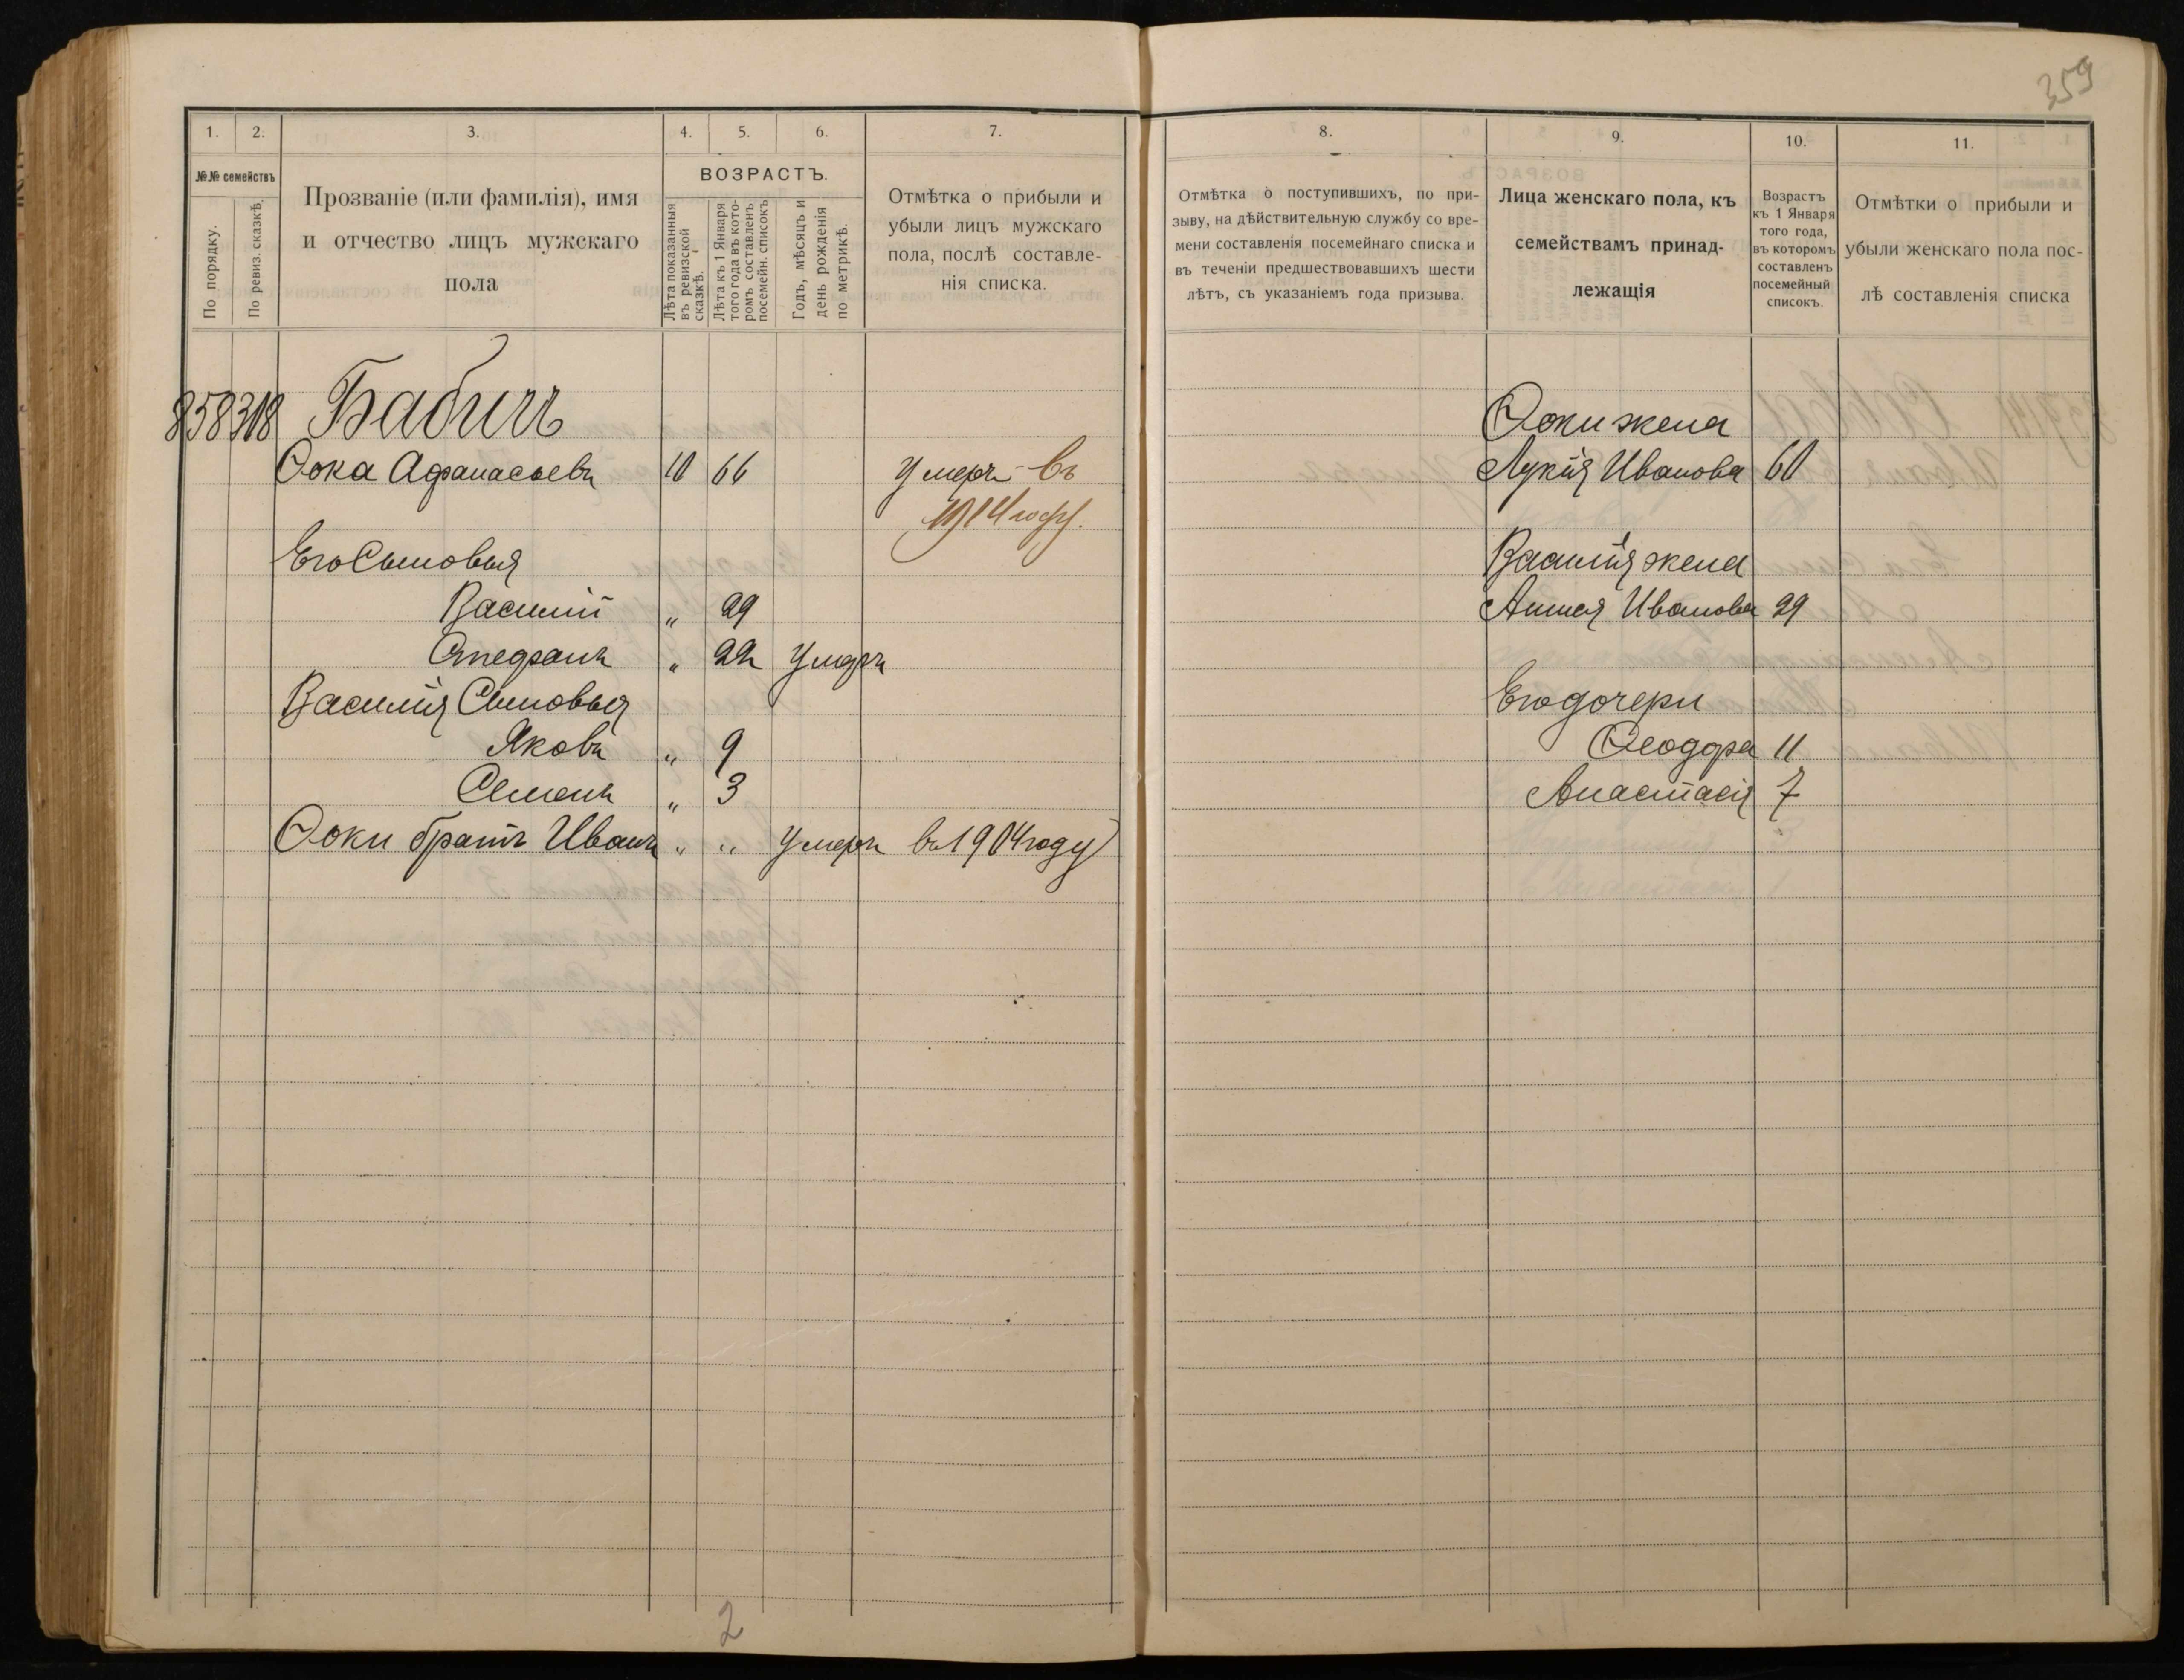 359
1.
2.
3.
4.
5.
6.
7.
№№ семействъ
По порядку.
По ревиз. сказкѣ.
Прозваніе (или фамилія), имя
и отчество лицъ мужскаго
пола
ВОЗРАСТЪ.
Лѣта показанныя
въ ревизской
сказкѣ.
Лѣта къ 1 Января
того года въ кото-
ромъ составленъ
посемейн. списокъ
Годъ, мѣсяцъ и
день рожденія
по метрикѣ.
Отмѣтка о прибыли и
убыли лицъ мужскаго
пола, послѣ составле-
нія списка.
858 318 Бабичъ
Ѳока Афанасьевъ 10 66 Умеръ въ
1914 году.
Его Сыновья
Василій " 29
Стефанъ " 22 Умеръ
Василія Сыновья
Яковъ " 9
Семенъ " 3
Ѳоки братъ Иванъ " " Умеръ въ 1904 году
2
8.
9.
10.
11.
Отмѣтка о поступившихъ, по при-
зыву, на дѣйствительную службу со вре-
мени составленія посемейнаго списка и
въ теченіи предшествовавшихъ шести
лѣтъ, съ указаніемъ года призыва.
Лица женскаго пола, къ
семействамъ принад-
лежащія
Возрастъ
къ 1 Января
того года,
въ которомъ
составленъ
посемейный
списокъ.
Отмѣтки о прибыли и
убыли женскаго пола пос-
лѣ составленія списка
Ѳоки жена
Лукія Иванова 60
Василія жена
Анна Иванова 29
Его дочери
Ѳеодора 11
Анастасія 7